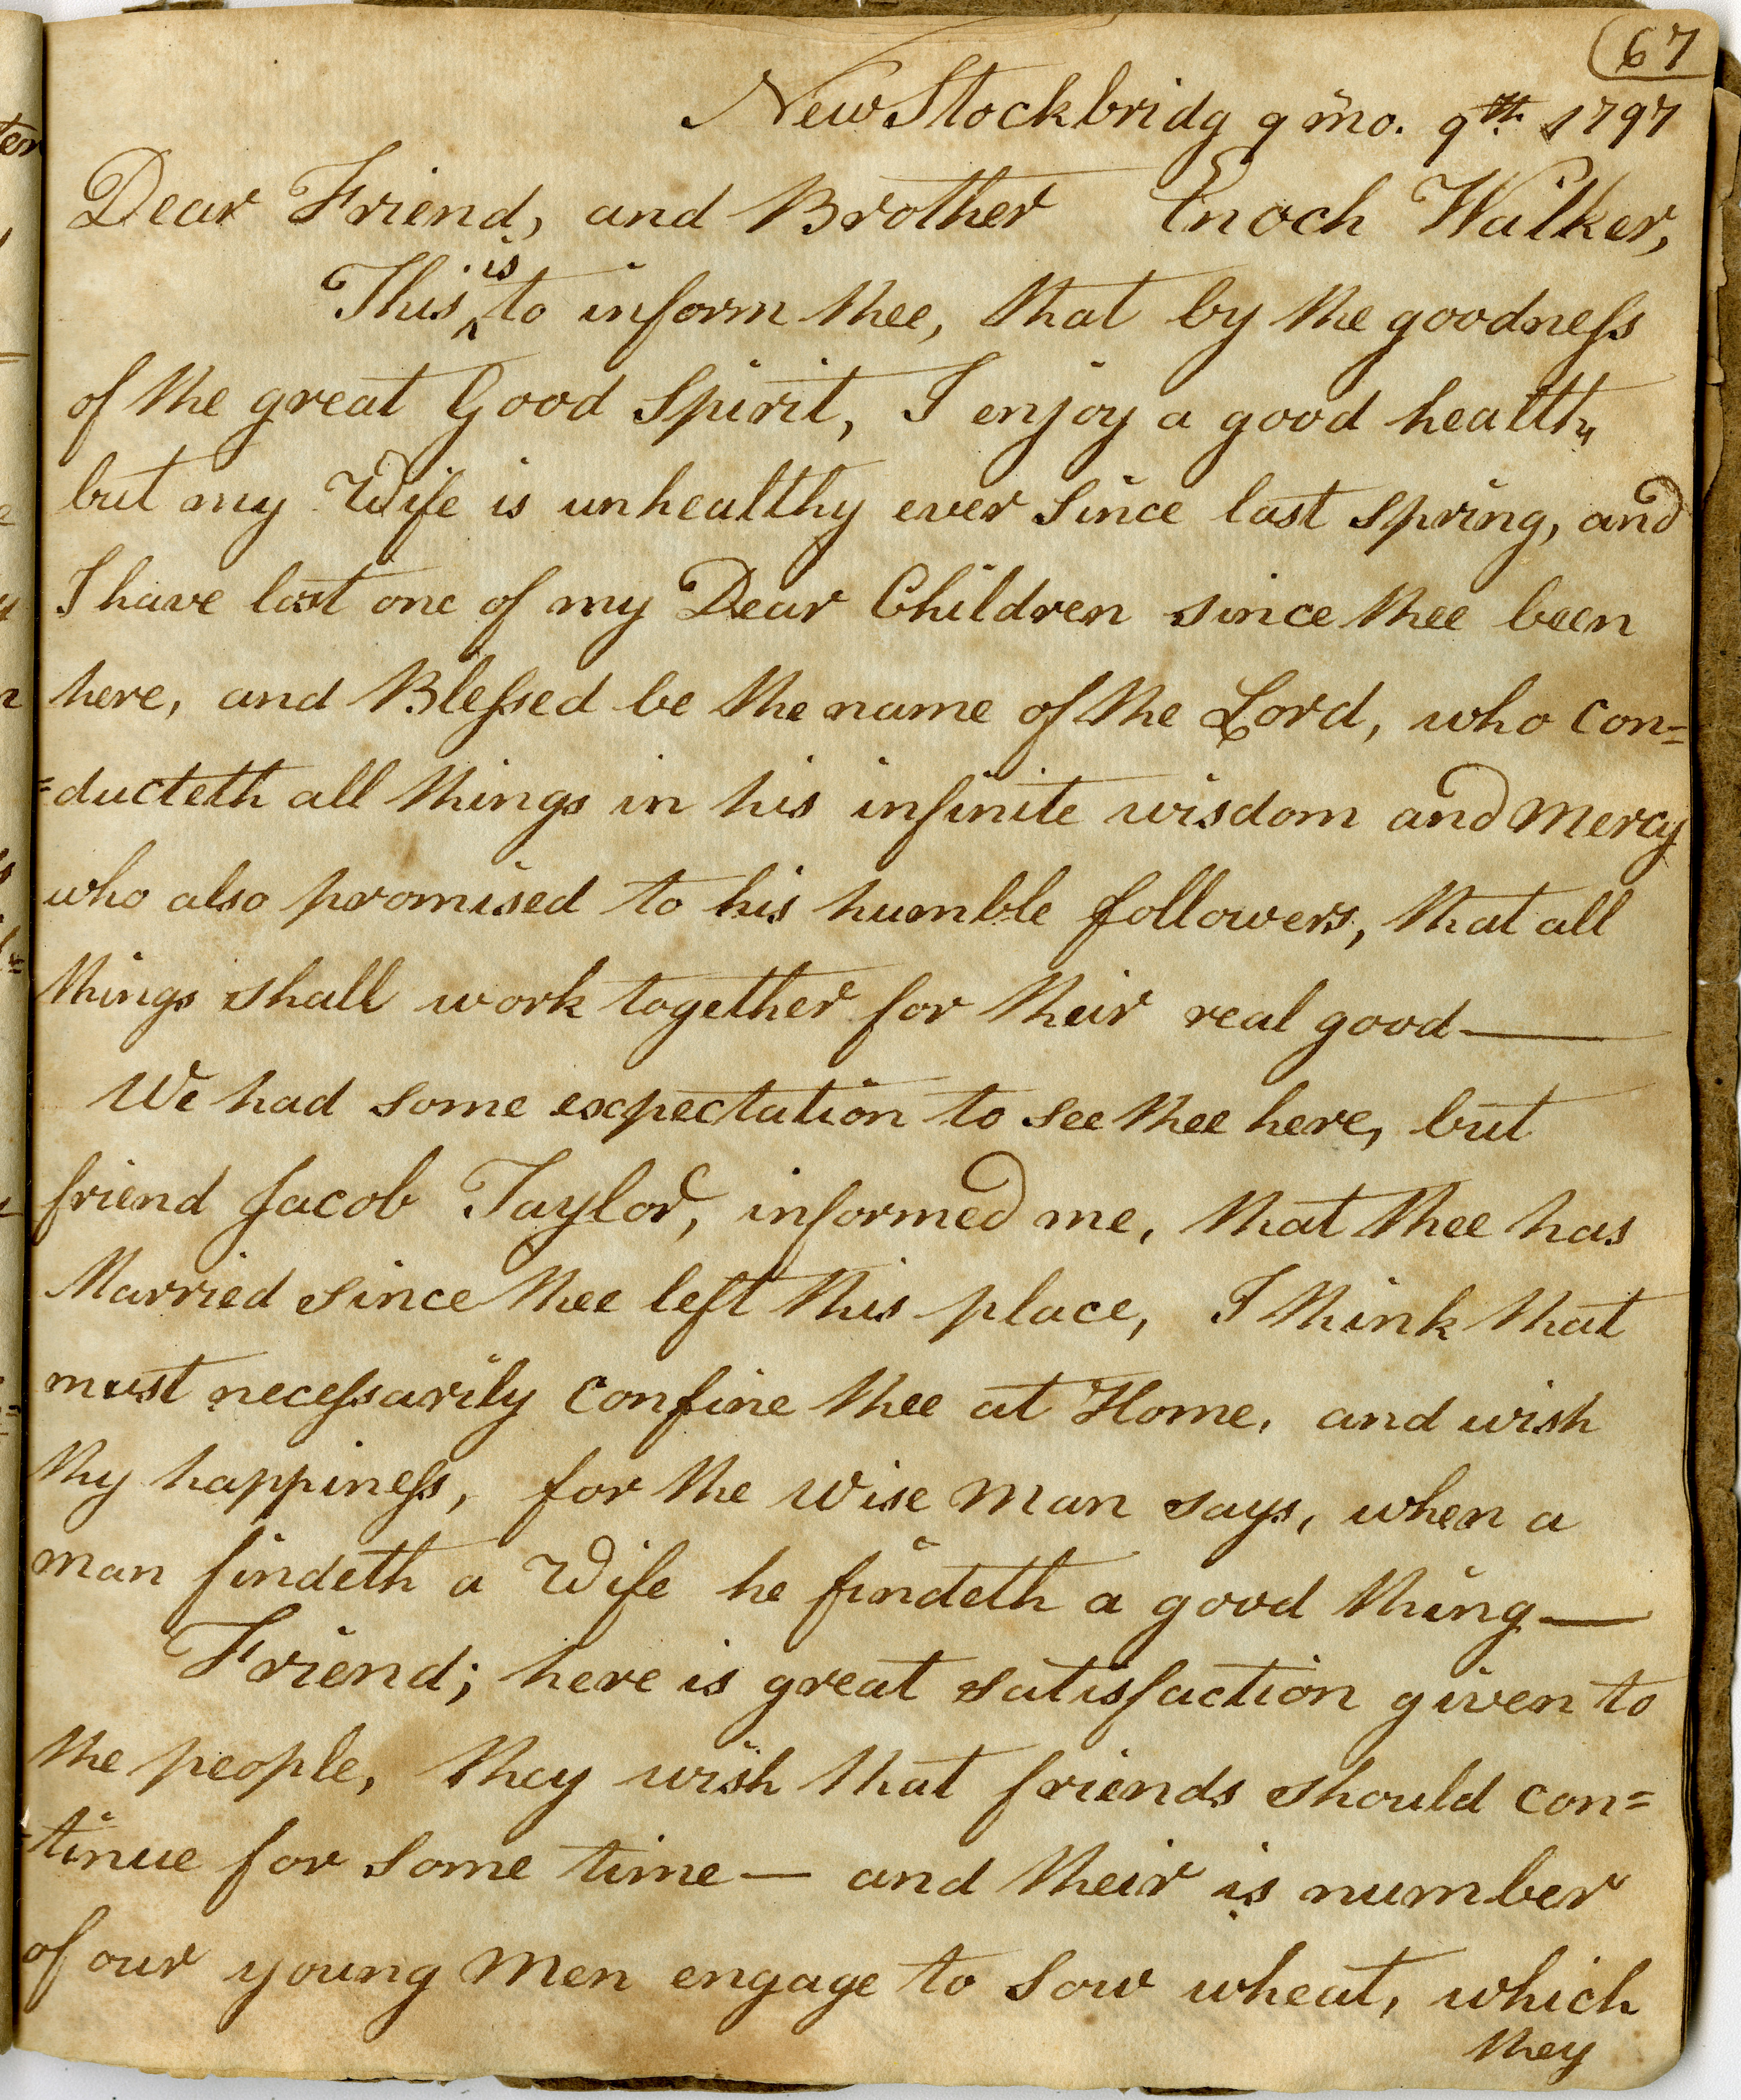 67
New Stockbridg 9 mo. 9th 1797
Dear Friend, and Brother Enoch Walker,
is
This ^ to inform thee, that by the goodness
of the great Good Spirit, I enjoy a good health,
but my Wife is unhealthy ever Since last Spring, and
I have lost one of my Dear Children since thee been
here, and Blessed be the name of the Lord, who con=
=ducteth all things in his infinite wisdom and Mercy
who also promised to his humble followers, that all
things shall work together for their real good—
We had some expectation to see thee here, but
friend Jacob Taylor, informed me, that thee has
Married since thee left this place, I think that
must necessarily confine thee at Home, and wish
thy happiness, for the Wise Man says, when a
man findeth a Wife he findeth a good thing—
Friend; here is great satisfaction given to
the people, they wish that friends should con=
=tinue for Some time— and their is number
of our young Men engage to Sow wheat, which
they